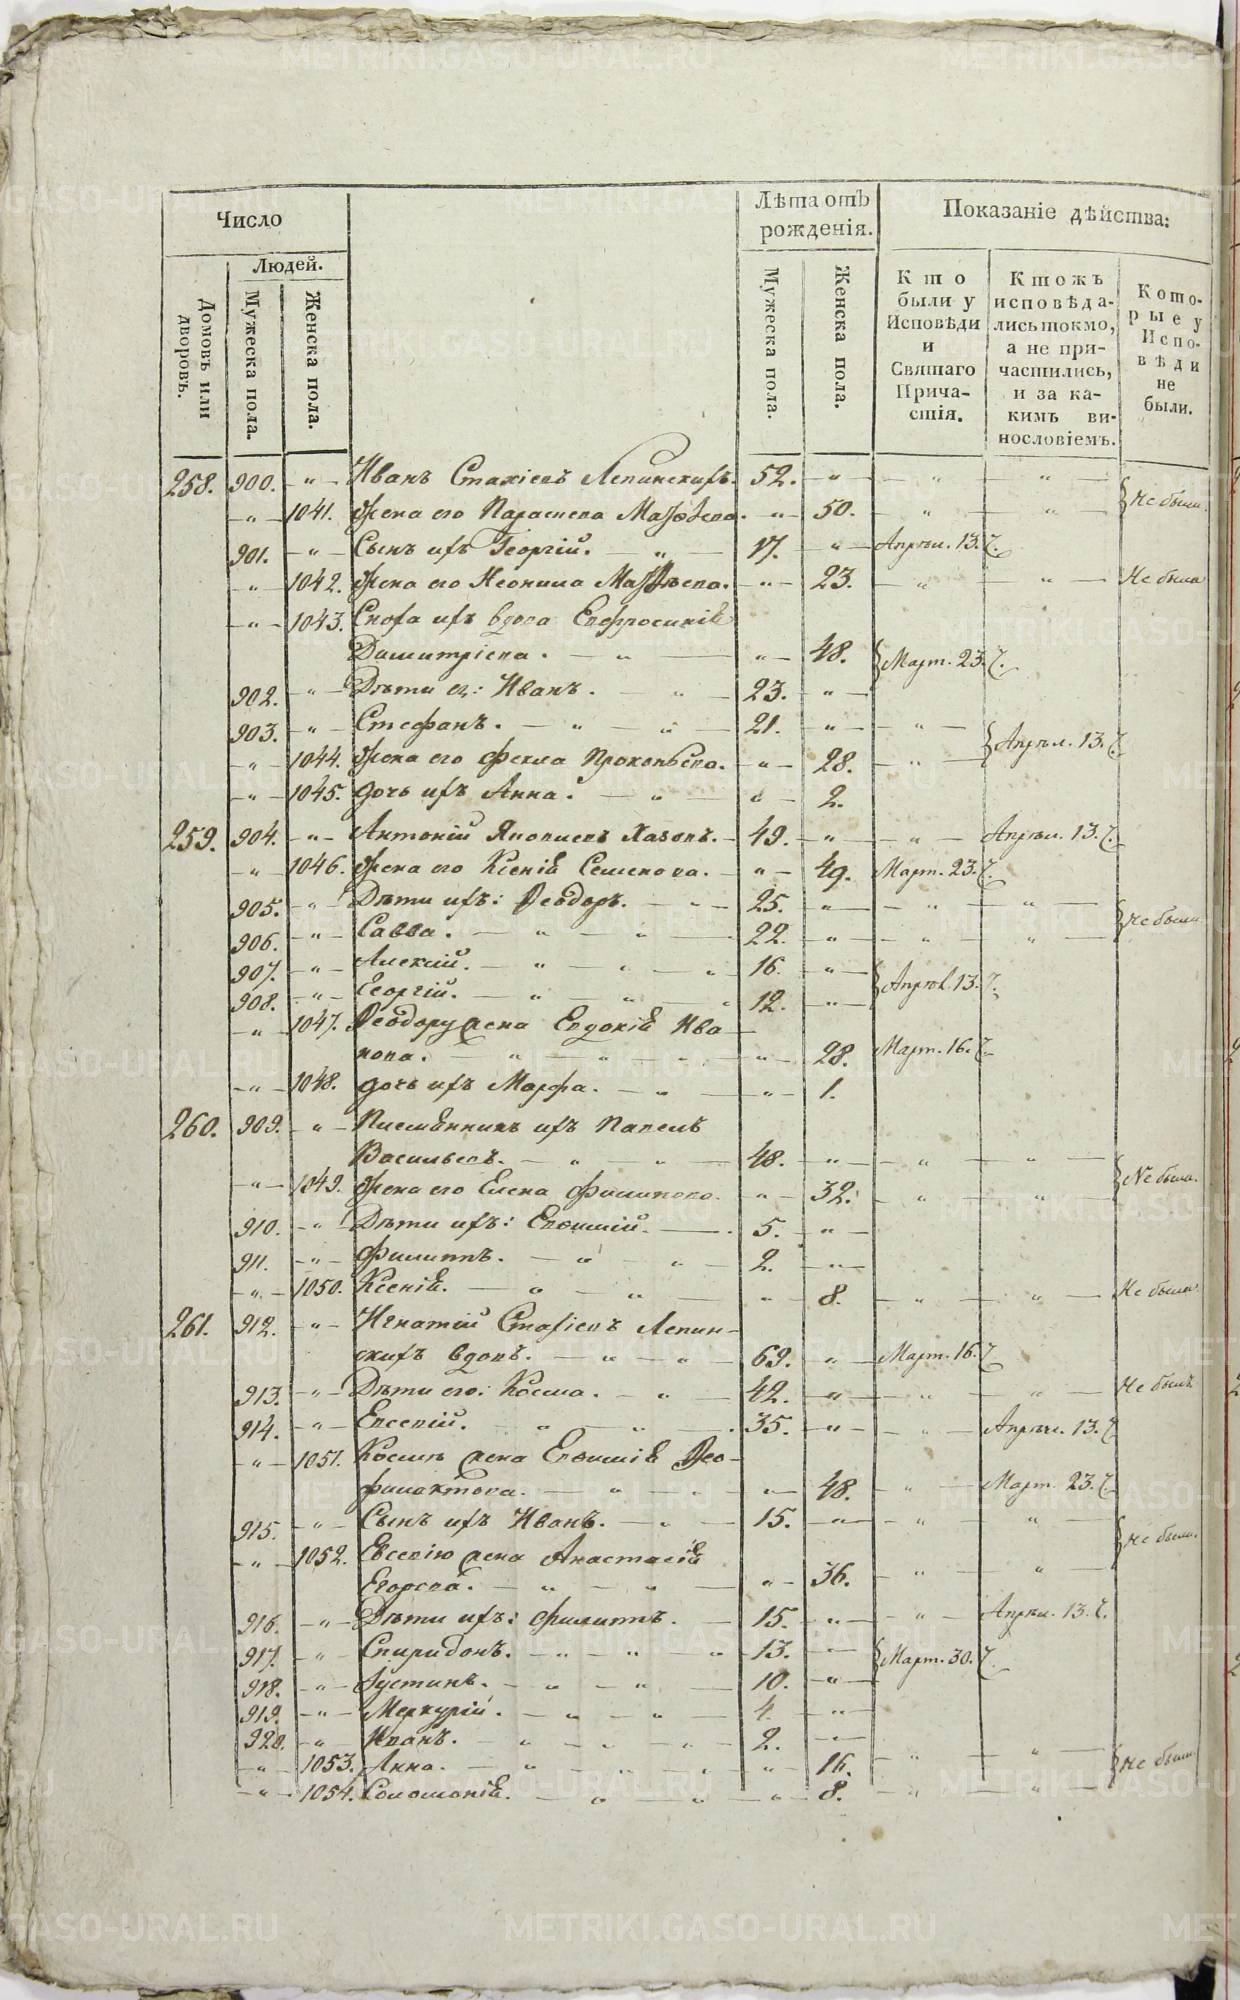 METRIKI.GASO-URAL.RU
Число
Лѣта отъ рожденія.
Показаніе дѣйства:
Людей.
Домовъ или дворовъ.
Мужеска пола.
Женска пола.
Мужеска пола.
Женска пола.
Кто были у Исповѣди и Святаго Причастія.
Ктожъ исповѣдались токмо, а не причастились, и за какимъ винословіемъ.
Которые у Исповѣди не были.
258. 900. „ Иванъ Стахіевъ Лепинскихъ. 52. „ „ „ Не были.
„ 1041. Жена его Параскева „ 50. „ „
901. „ Сынъ ихъ Георгій. „ 17. „ Апрѣл. 13.
„ 1042. Жена его Неонила „ 23. „ „ Не была
„ 1043. Сноха ихъ вдова Евфросинія
Димитріева. „ „ 48. Март. 23.
902. „ Дѣти ея: Иванъ. „ 23. „
903. „ Стефанъ. „ „ 21. „ „ Апрѣл. 13.
„ 1044. Жена его Фекла Прокопьева. „ 28. „
„ 1045. Дочь ихъ Анна. „ „ 2.
259. 904. „ Антоній Хазовъ. 49. „ „ Апрѣл. 13.
„ 1046. Жена его Ксенія Семенова. „ 49. Март. 23.
905. „ Дѣти ихъ: Ѳеодоръ. „ 25. „ „ „ Не были
906. „ Савва. „ „ 22. „ „ „
907. „ Алексій. „ „ „ 16. „ Апрѣл. 13.
908. „ Георгій. „ „ „ 12. „
„ 1047. Ѳеодору жена Евдокія Ива
нова. „ „ „ „ 28. Март. 16.
„ 1048. Дочь ихъ Марфа. „ „ 1.
260. 909. „ Племянникъ ихъ Павелъ
Васильевъ. „ „ 48. „ „ „
„ 1049. Жена его Елена Филипова. „ 32. „ „ Не были.
910. „ Дѣти ихъ: Евѳимій. 5. „
911. „ Филиппъ. „ „ 2. „
„ 1050. Ксенія. „ „ „ 8. „ „ Не была
261. 912. „ Игнатій Стахіевъ Лепин-
скихъ вдовъ. „ „ 69. „ Март. 16.
913. „ Дѣти его: Косма. „ 42. „ „ „ Не былъ
914. „ Евсевій. „ „ 35. „ „ Апрѣл. 13.
„ 1051. Космѣ жена Евѳимія Ѳео-
филактова. „ „ „ 48. „ Март. 23.
915. „ Сынъ ихъ Иванъ. „ 15. „ „ „ Не были.
„ 1052. Евсевію жена Анастасія
Егорева. „ „ „ 36. „ „
916. „ Дѣти ихъ: Филиппъ. 15. „ „ Апрѣл. 13.
917. „ Спиридонъ. „ „ „ 13. „ Март. 30.
918. „ Іустинъ. „ „ 10. „
919. „ Меркурій. „ „ 4. „
920. „ Иванъ. „ „ „ 2. „
„ 1053. Анна. „ „ „ „ 16. „ „ Не были
„ 1054. Соломонія. „ „ „ 8. „ „